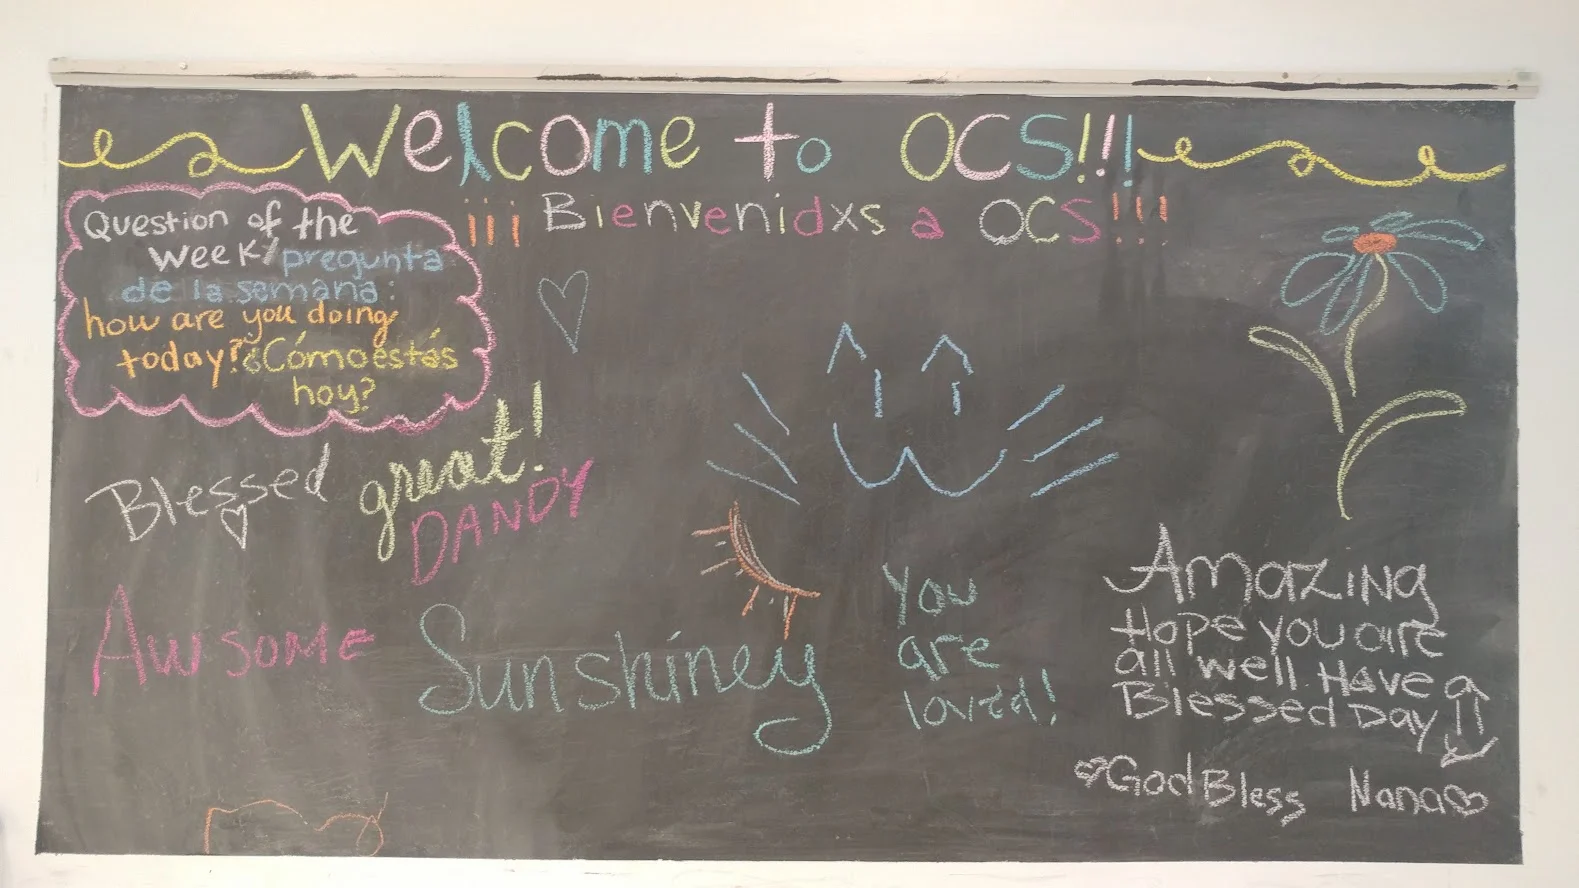 Welcome to OCS!!!
¡¡¡ Bienvenidxs a OCS!!!
Question of the
week/pregunta
de la semana:
how are you doing
today?¿Cómo estás
hoy?
Blessed
great!
DANDY
Awsome
Sunshiney
You
are
loved!
Amazing
Hope you are
all well. Have a
Blessed Day!!
God Bless Nana